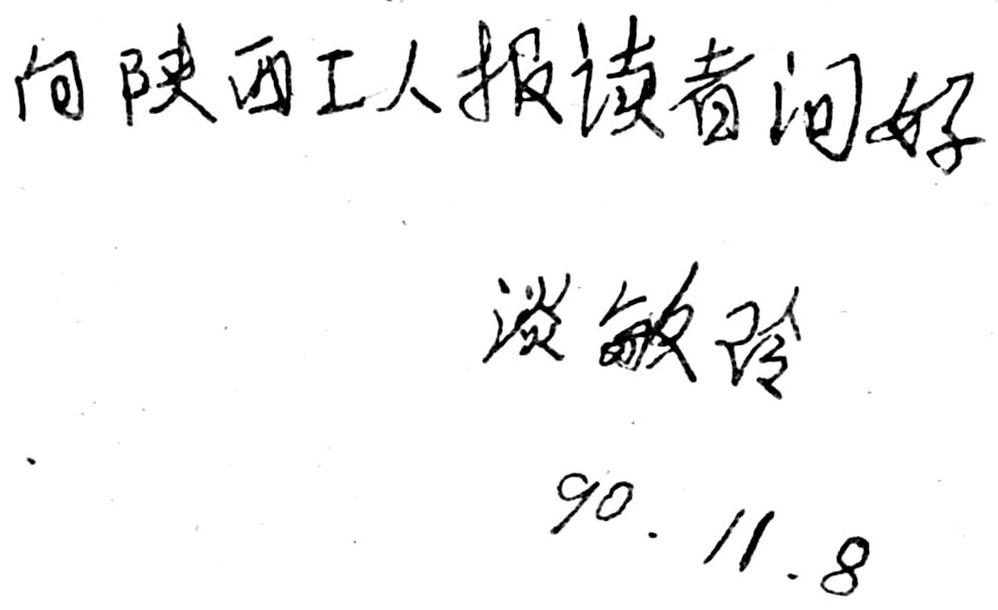 向陕西工人报读者问好
淡敏玲
90.11.8